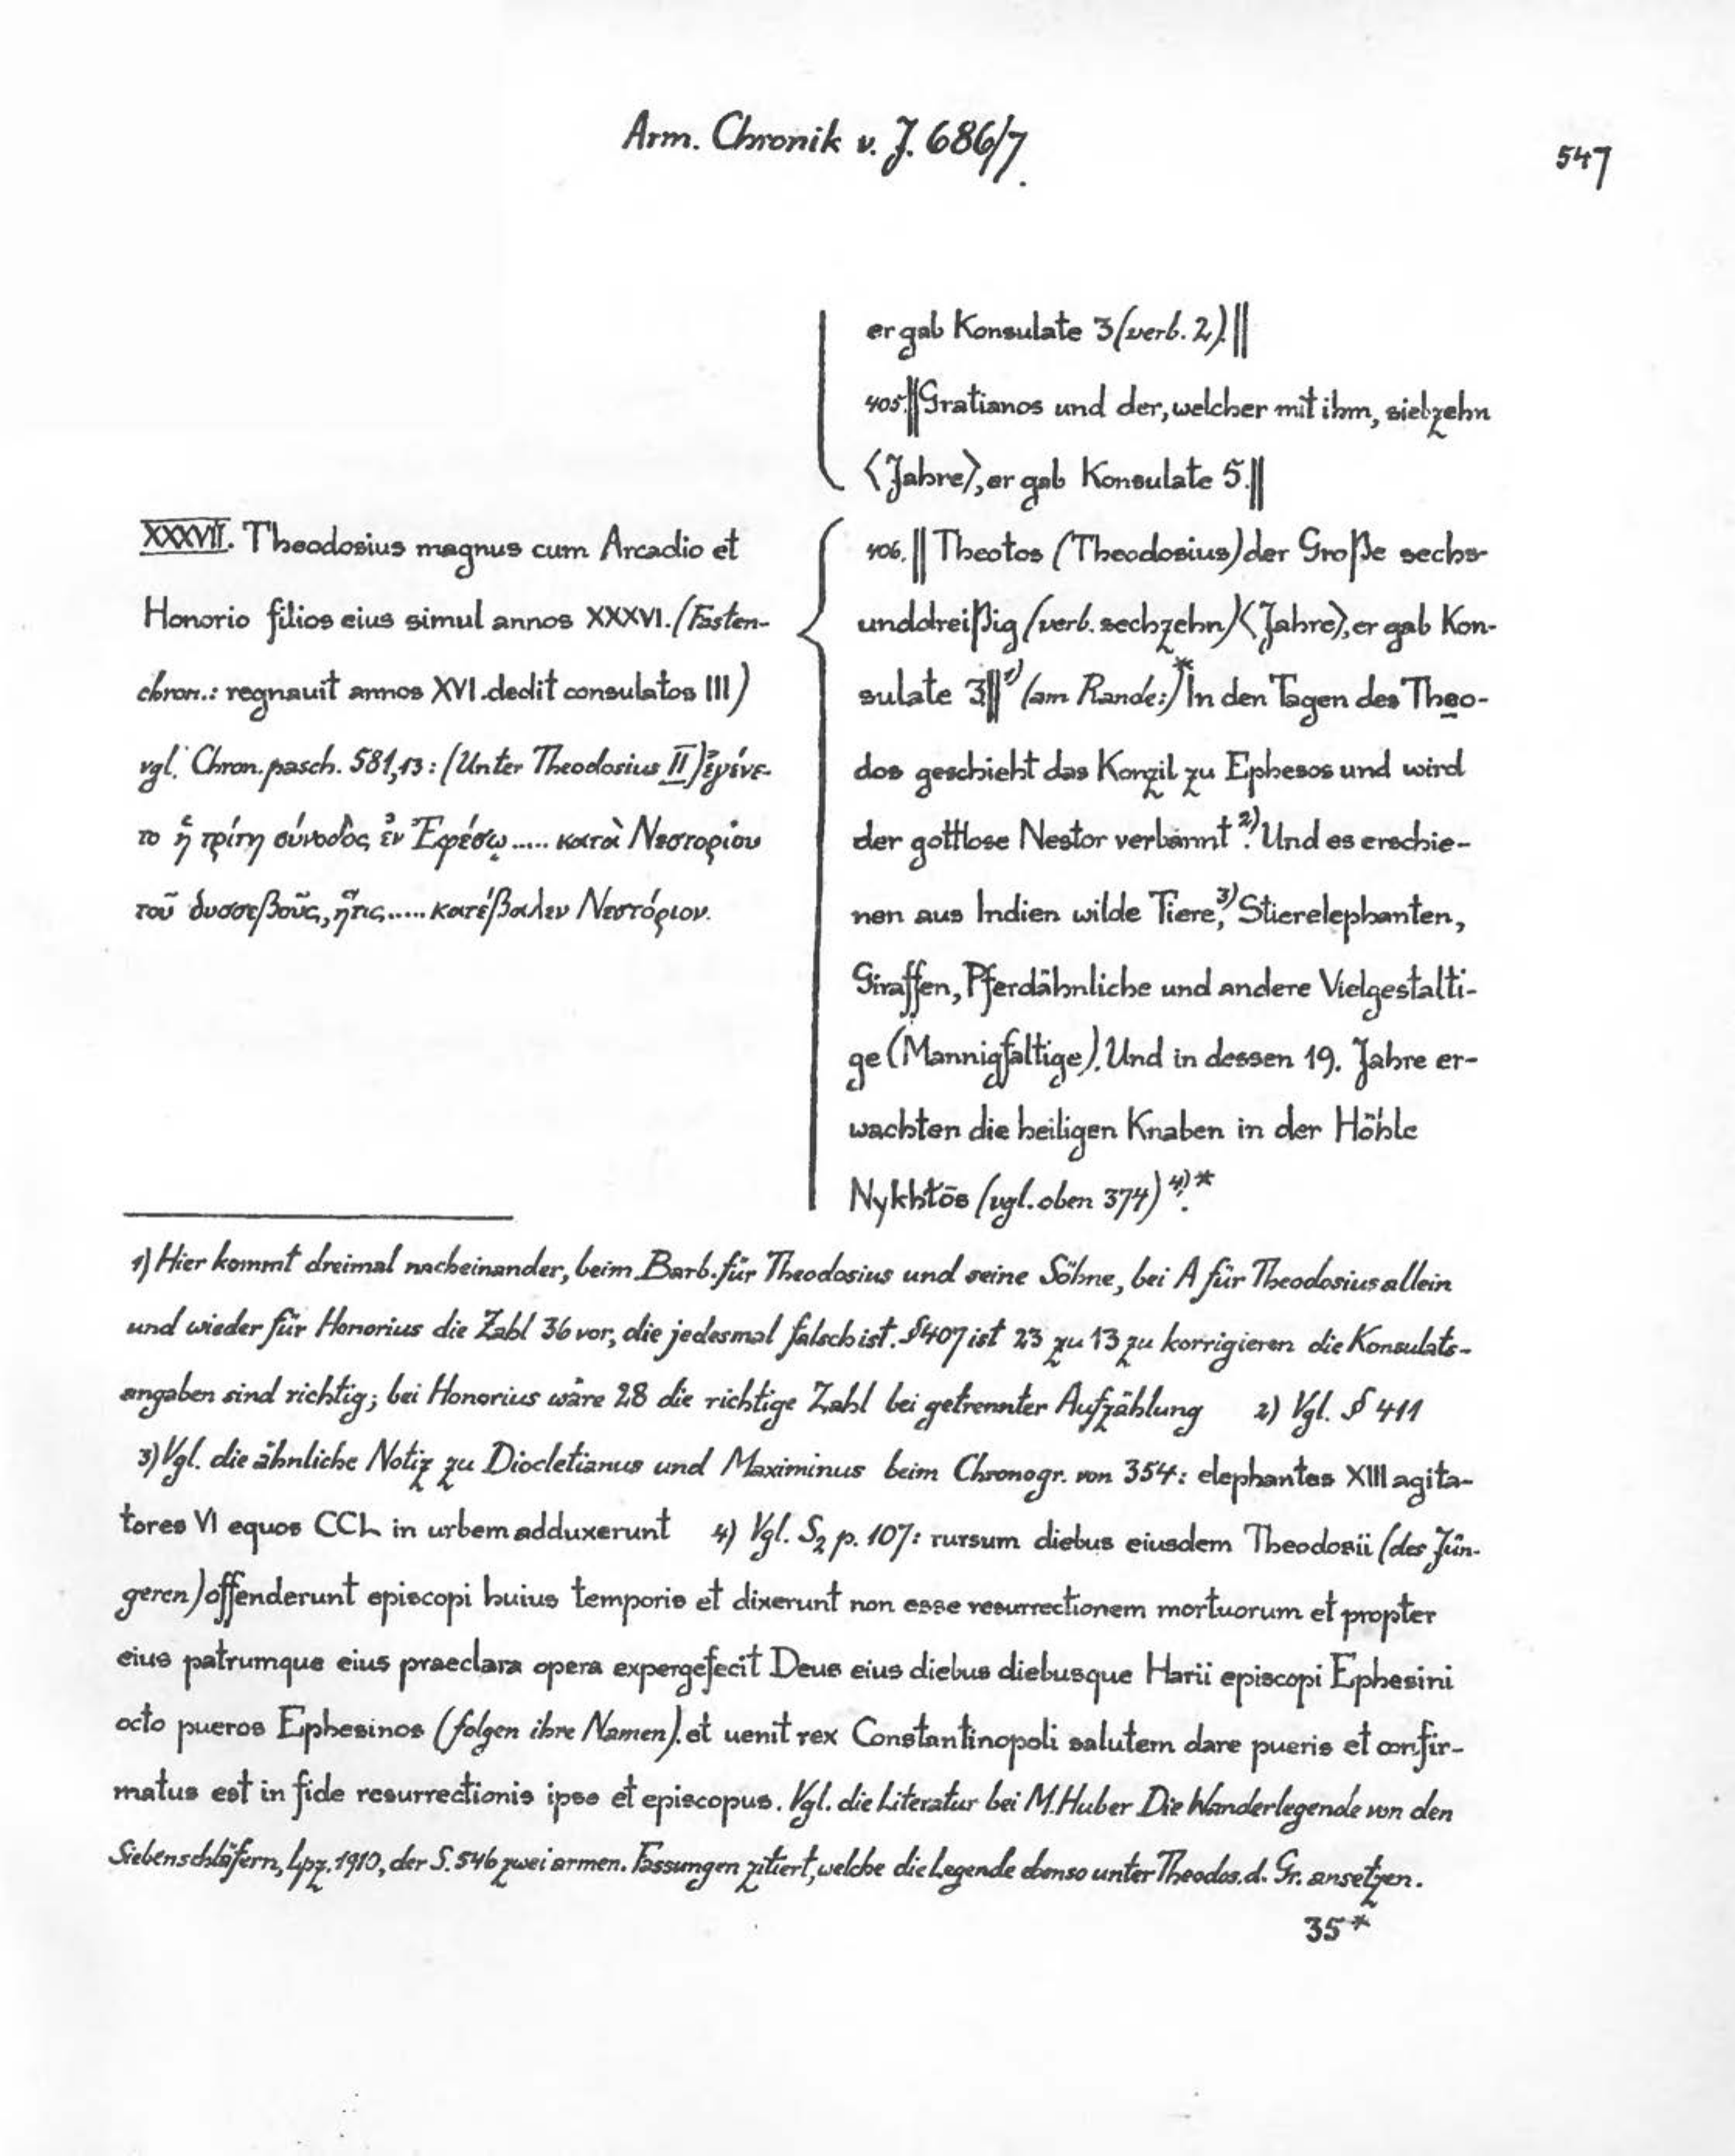 Arm. Chronik v. J. 686/7.
547
er gab Konsulate 3 (verb. 2).||
405.||Gratianos und der, welcher mit ihm, siebzehn
⟨Jahre⟩, er gab Konsulate 5.||
XXXVII. Theodosius magnus cum Arcadio et
Honorio filios eius simul annos XXXVI. (Fasten-
chron.: regnauit annos XVI. dedit consulatos III)
vgl. Chron. pasch. 581,13: (Unter Theodosius II) ἐγένε-
το ἡ τρίτη σύνοδος ἐν Ἐφέσῳ ..... κατὰ Νεστορίου
τοῦ δυσσεβοῦς, ἥτις ..... κατέβαλεν Νεστόριον.
406.|| Theotos (Theodosius) der Große sechs-
unddreißig (verb. sechzehn) ⟨Jahre⟩, er gab Kon-
sulate 3||¹⁾ (am Rande:) *In den Tagen des Theo-
dos geschieht das Konzil zu Ephesos und wird
der gottlose Nestor verbannt²⁾. Und es erschie-
nen aus Indien wilde Tiere,³⁾ Stierelephanten,
Giraffen, Pferdähnliche und andere Vielgestalti-
ge (Mannigfaltige). Und in dessen 19. Jahre er-
wachten die heiligen Knaben in der Höhle
Nykhtōs (vgl. oben 374)⁴⁾.*
1) Hier kommt dreimal nacheinander, beim Barb. für Theodosius und seine Söhne, bei A für Theodosius allein
und wieder für Honorius die Zahl 36 vor, die jedesmal falsch ist. §407 ist 23 zu 13 zu korrigieren die Konsulats-
angaben sind richtig; bei Honorius wäre 28 die richtige Zahl bei getrennter Aufzählung 2) Vgl. § 411
3) Vgl. die ähnliche Notiz zu Diocletianus und Maximinus beim Chronogr. von 354: elephantes XIII agita-
tores VI equos CCL in urbem adduxerunt 4) Vgl. S₂ p. 107: rursum diebus eiusdem Theodosii (des Jün-
geren) offenderunt episcopi huius temporis et dixerunt non esse resurrectionem mortuorum et propter
eius patrumque eius praeclara opera expergefecit Deus eius diebus diebusque Harii episcopi Ephesini
octo pueros Ephesinos (folgen ihre Namen). et uenit rex Constantinopoli salutem dare pueris et confir-
matus est in fide resurrectionis ipse et episcopus. Vgl. die Literatur bei M. Huber Die Wanderlegende von den
Siebenschläfern, Lpz. 1910, der S. 546 zwei armen. Fassungen zitiert, welche die Legende ebenso unter Theodos. d. Gr. ansetzen.
35*